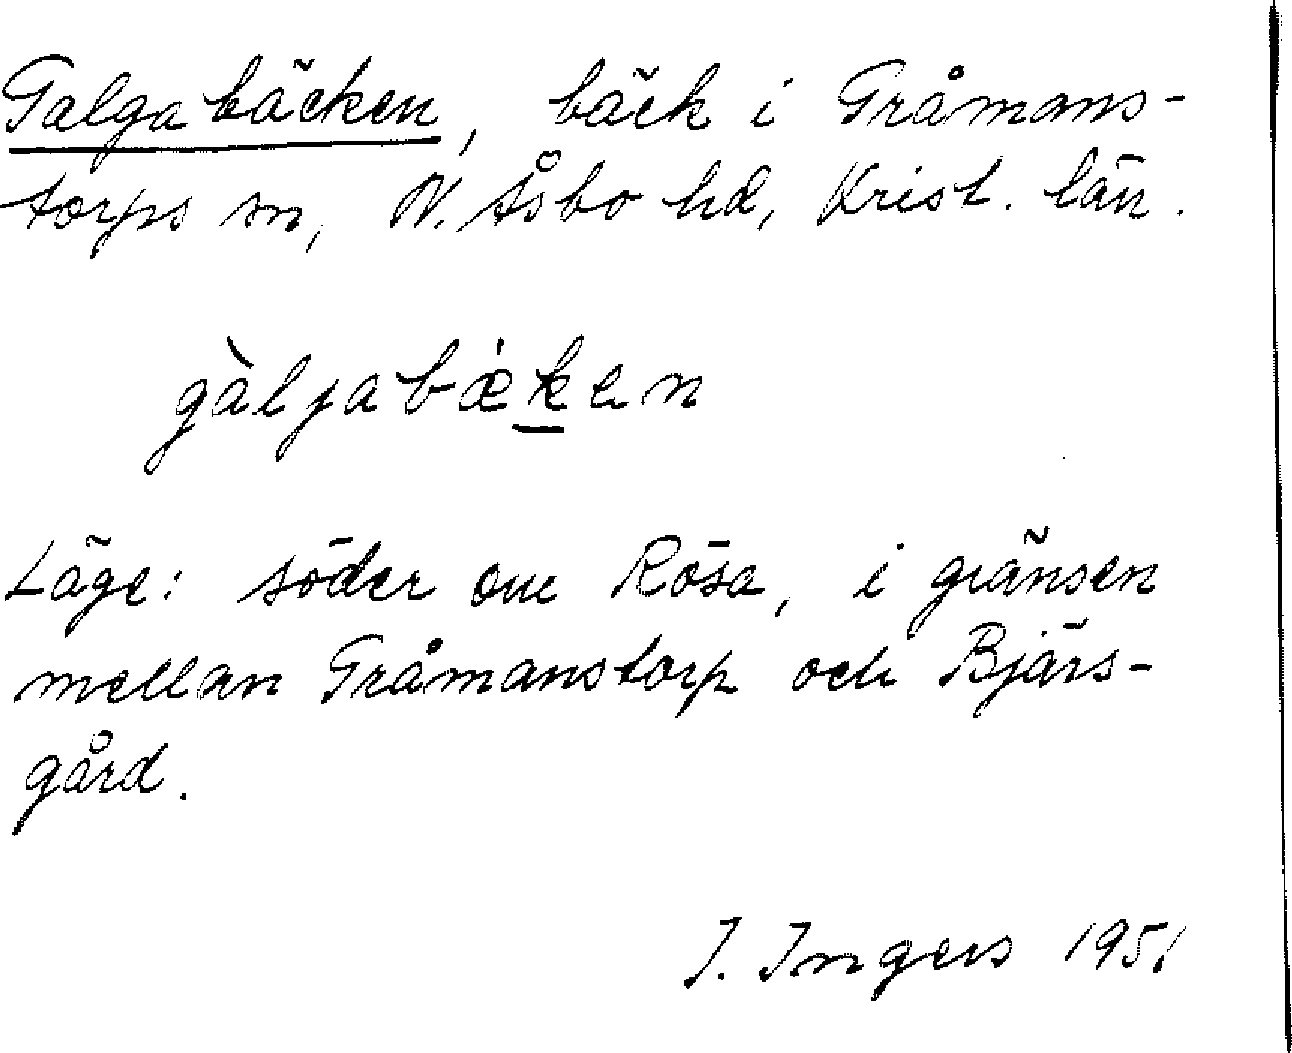 Galgabäcken, bäck i Gråmans-
torps sn, N. Åsbo hd, Krist. län.
gàljabǽken
Läge: söder om Rösa, i gränsen
mellan Gråmanstorp och Bjärs-
gård.
I. Ingers 1951